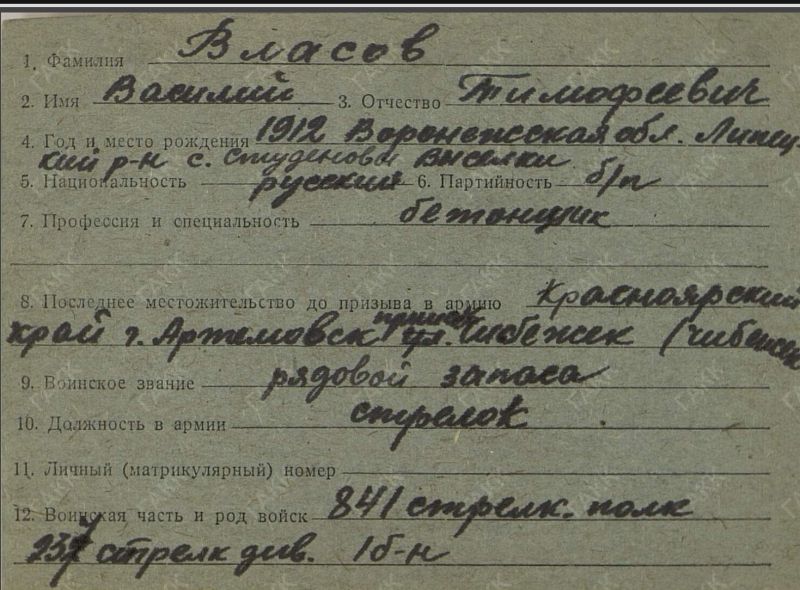 1. Фамилия Власов
2. Имя Василий 3. Отчество Тимофеевич
4. Год и место рождения 1912 Воронежская обл. Липец-
кий р-н с. Студеновы Выселки
5. Национальность русский 6. Партийность б/п
7. Профессия и специальность бетонщик
8. Последнее местожительство до призыва в армию Красноярский
край г. Артемовск прииск Чибежек (Чибежек
9. Воинское звание рядовой запаса
10. Должность в армии стрелок
11. Личный (матрикулярный) номер
12. Воинская часть и род войск 841 стрелк. полк
237 стрелк див. 1 б-н
ГАКК